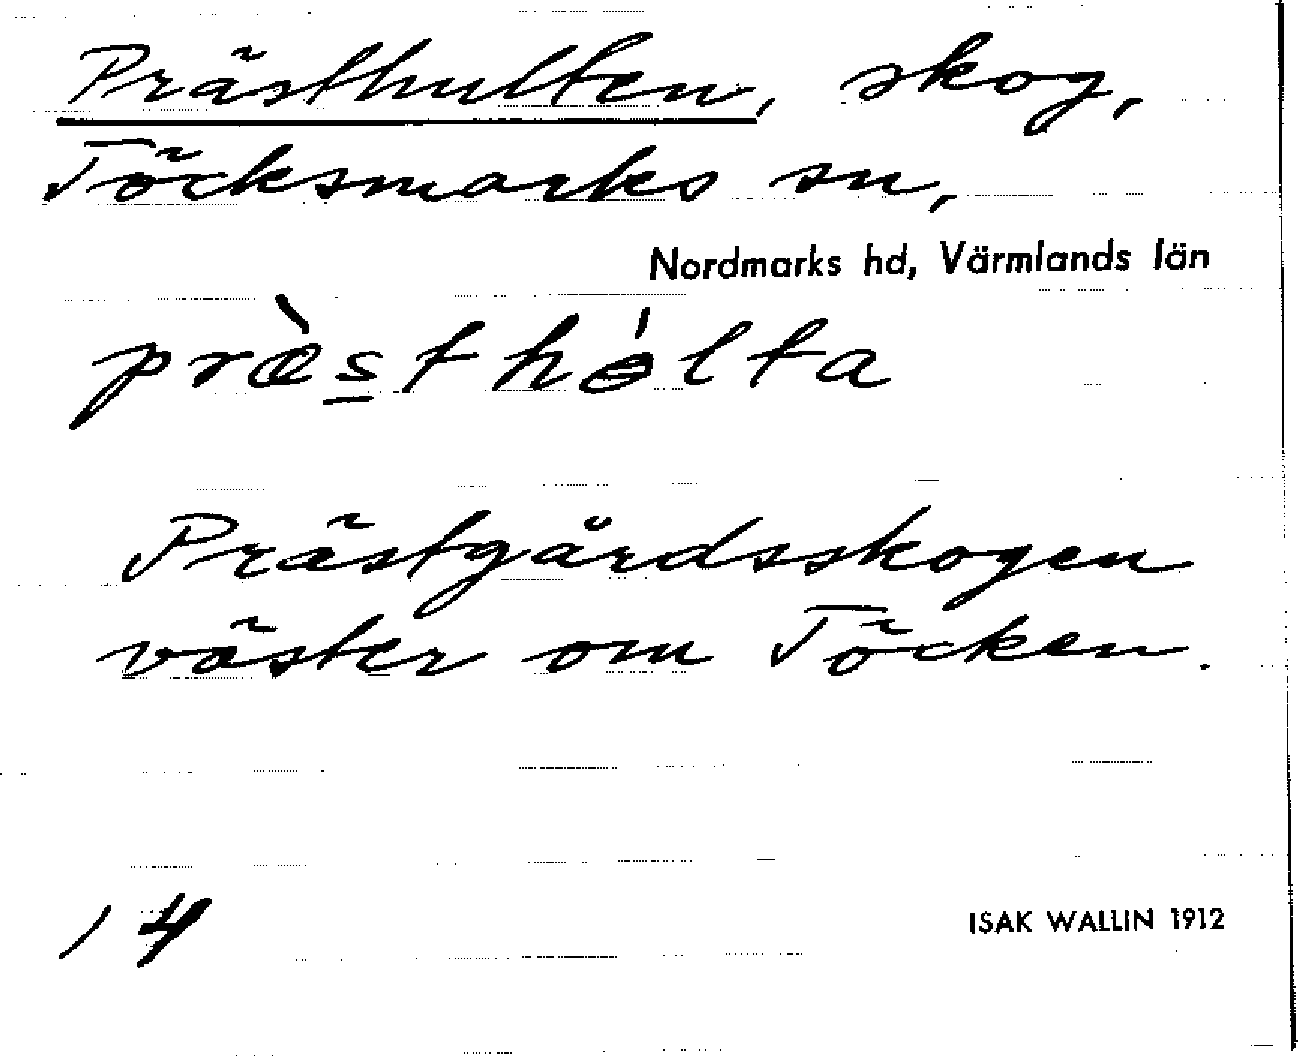 Prästhulten, skog,
Töcksmarks sn,
Nordmarks hd, Värmlands län
præ̀sthɵ́lta
Prästgårdsskogen
väster om Töcken.
14
ISAK WALLIN 1912